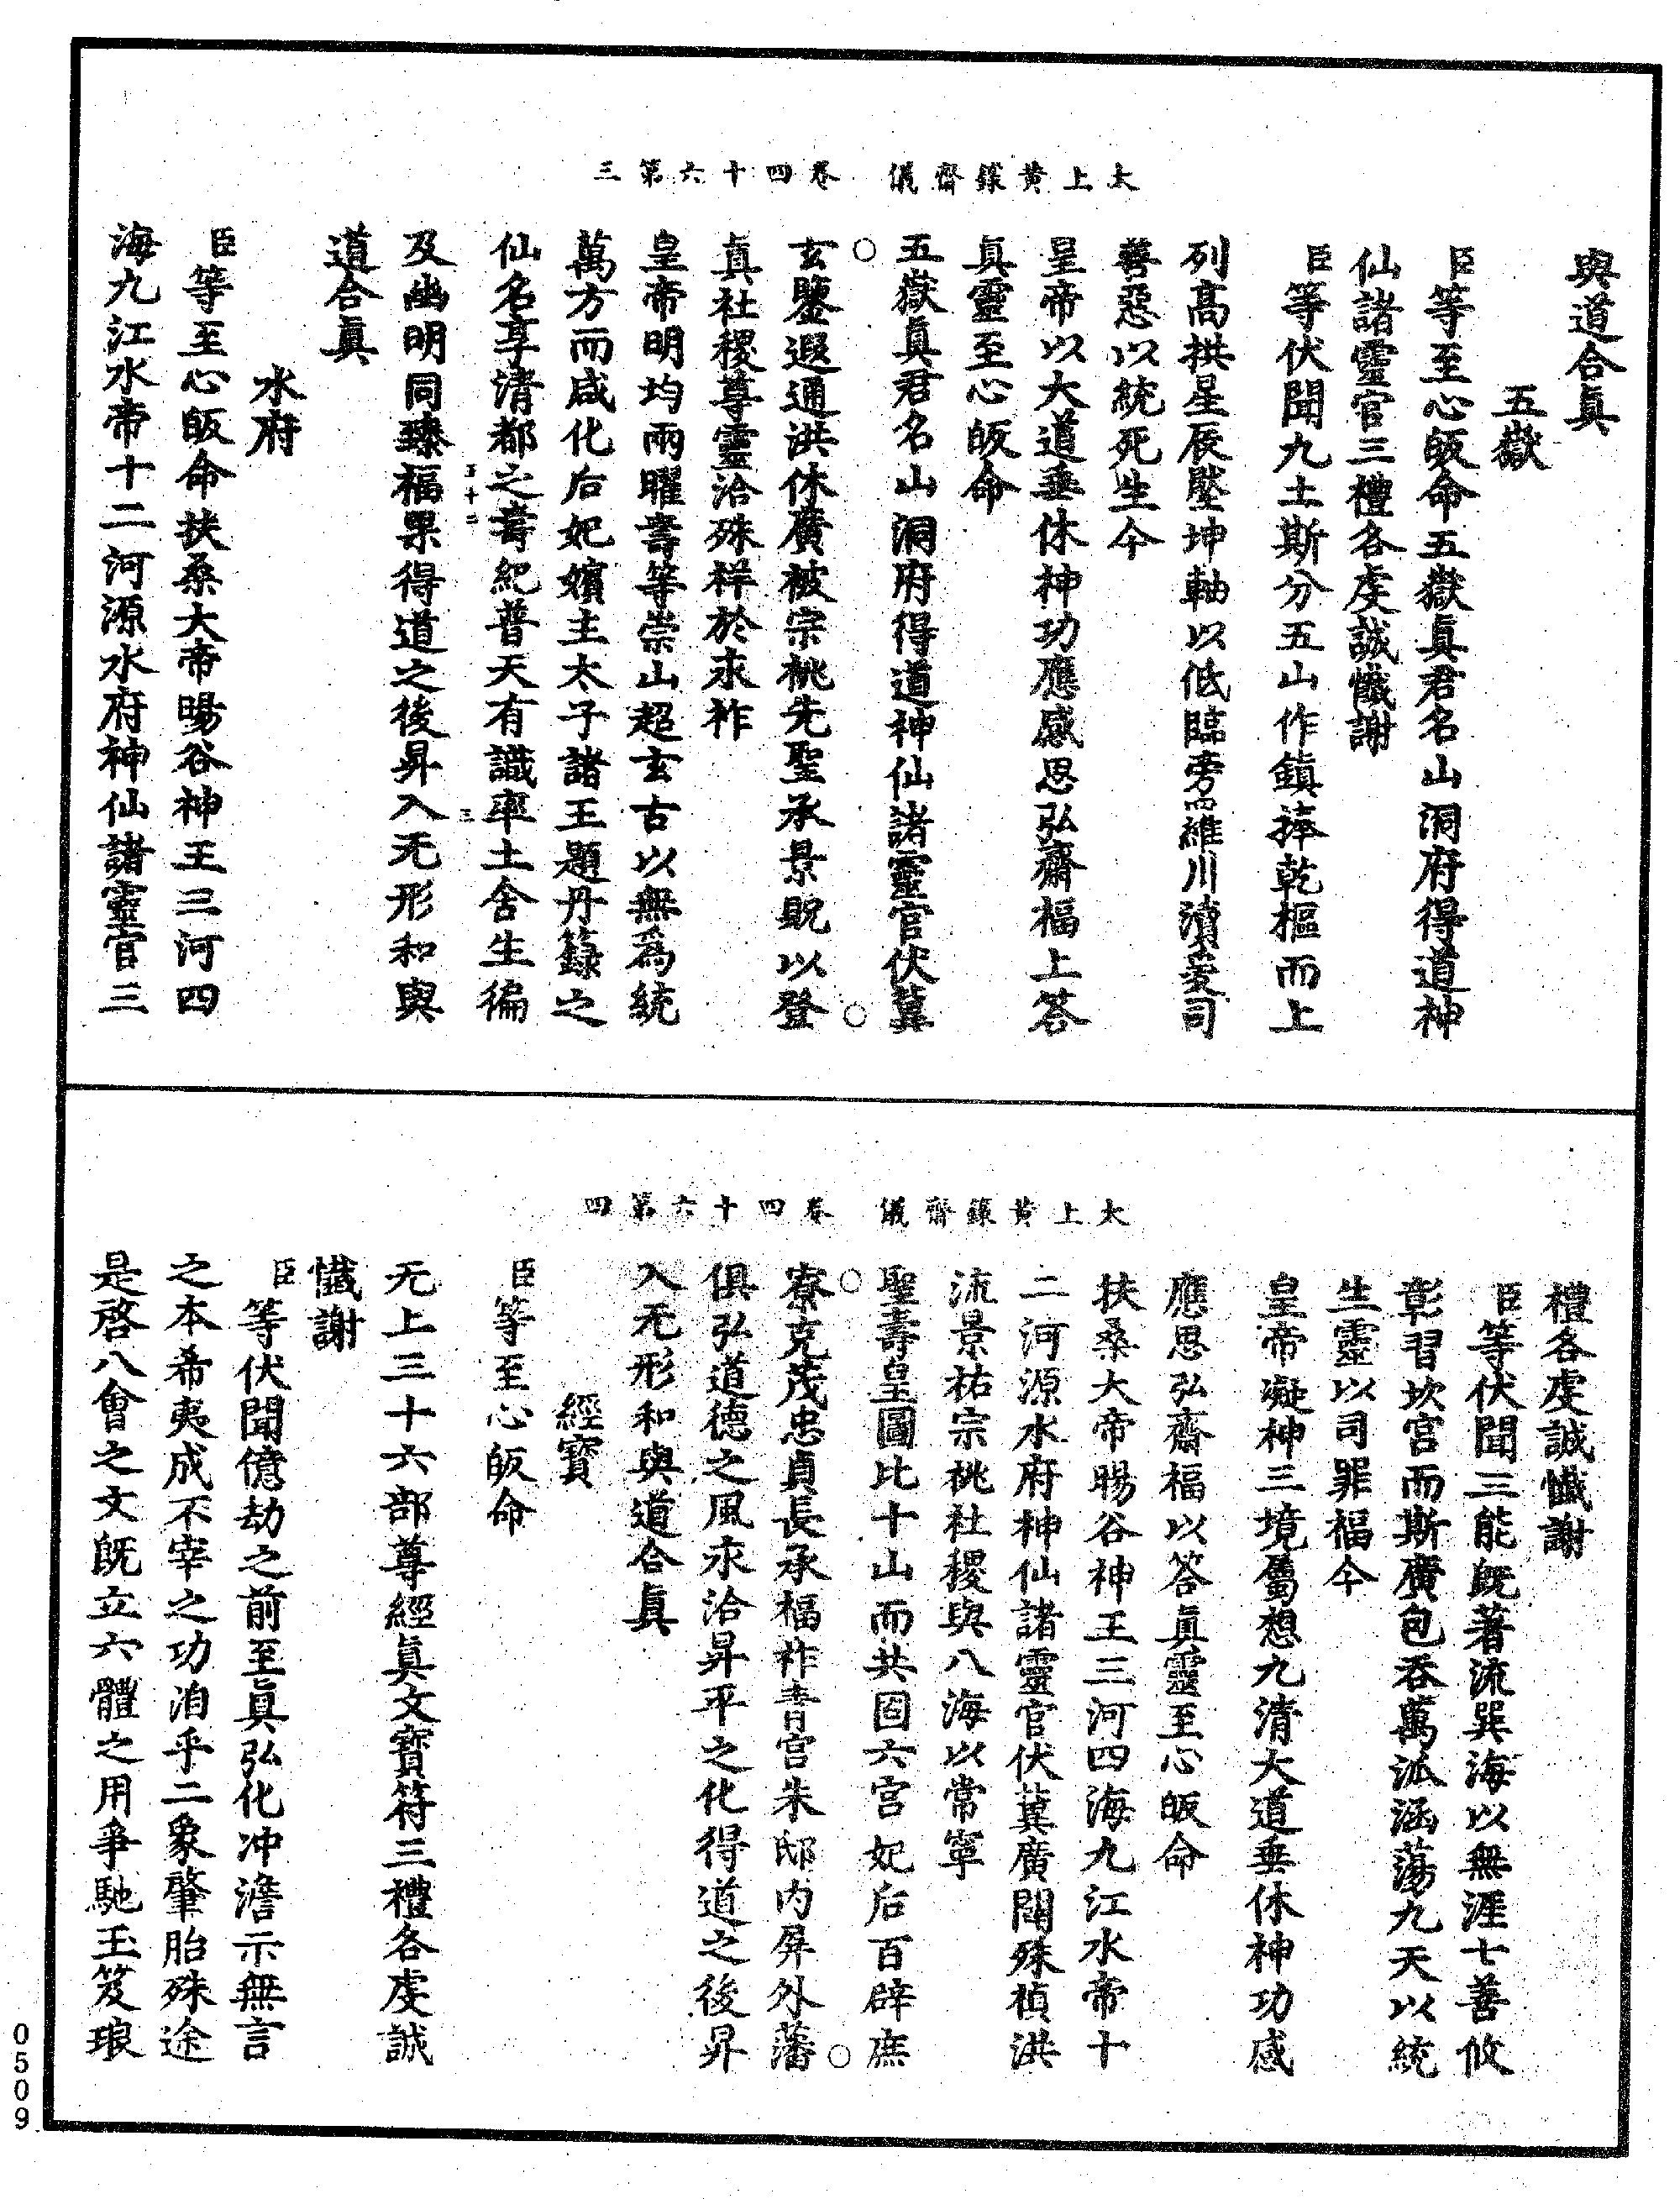 太上黃籙齋儀　卷四十六第三
與道合眞
五嶽
臣等至心皈命五嶽眞君名山洞府得道神
仙諸靈官三禮各虔誠懺謝
臣等伏聞九土斯分五山作鎮捧乾樞而上
列高拱星辰壓坤軸以低臨旁羅川瀆爰司
善惡以統死生今
皇帝以大道垂休神功應感思弘齋福上答
眞靈至心皈命
五嶽眞君名山洞府得道神仙諸靈官伏冀
玄鑒遐通洪休廣被宗桃先聖承景貺以登
眞社稷尊靈洽殊祥於永祚
皇帝明均兩曜壽等崇山超玄古以無爲統
萬方而咸化后妃嬪主太子諸王題丹籙之
仙名享清都之壽紀普天有識率土含生徧
及幽明同臻福果得道之後昇入无形和與
道合眞
水府
臣等至心皈命扶桑大帝暘谷神王三河四
海九江水帝十二河源水府神仙諸靈官三
太上黃籙齋儀　卷四十六第四
禮各虔誠懺謝
臣等伏聞三能旣著流巽海以無涯七善攸
彰習坎宮而斯廣包吞萬派涵蕩九天以統
生靈以司罪福今
皇帝凝神三境屬想九清大道垂休神功感
應思弘齋福以答眞靈至心皈命
扶桑大帝暘谷神王三河四海九江水帝十
二河源水府神仙諸靈官伏冀廣開殊禎洪
流景祐宗桃社稷與八海以常寧
聖壽皇圖比十山而共固六宮妃后百辟庶
寮克茂忠貞長承福祚青宮朱邸內屏外藩
俱弘道德之風永洽昇平之化得道之後昇
入无形和與道合眞
經寳
臣等至心皈命
无上三十六部尊經眞文寳符三禮各虔誠
懺謝
臣等伏聞億劫之前至眞弘化冲澹示無言
之本希夷成不宰之功洎乎二象肇胎殊途
是啓八會之文旣立六體之用爭馳玉笈琅
0509